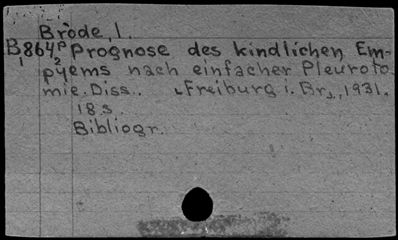 Brode, I.
B864p Prognose des kindlichen Em-
1 2 pyems nach einfacher Pleuroto
mie. Diss. Freiburg i. Br., 1931.
18 s.
Bibliogr.